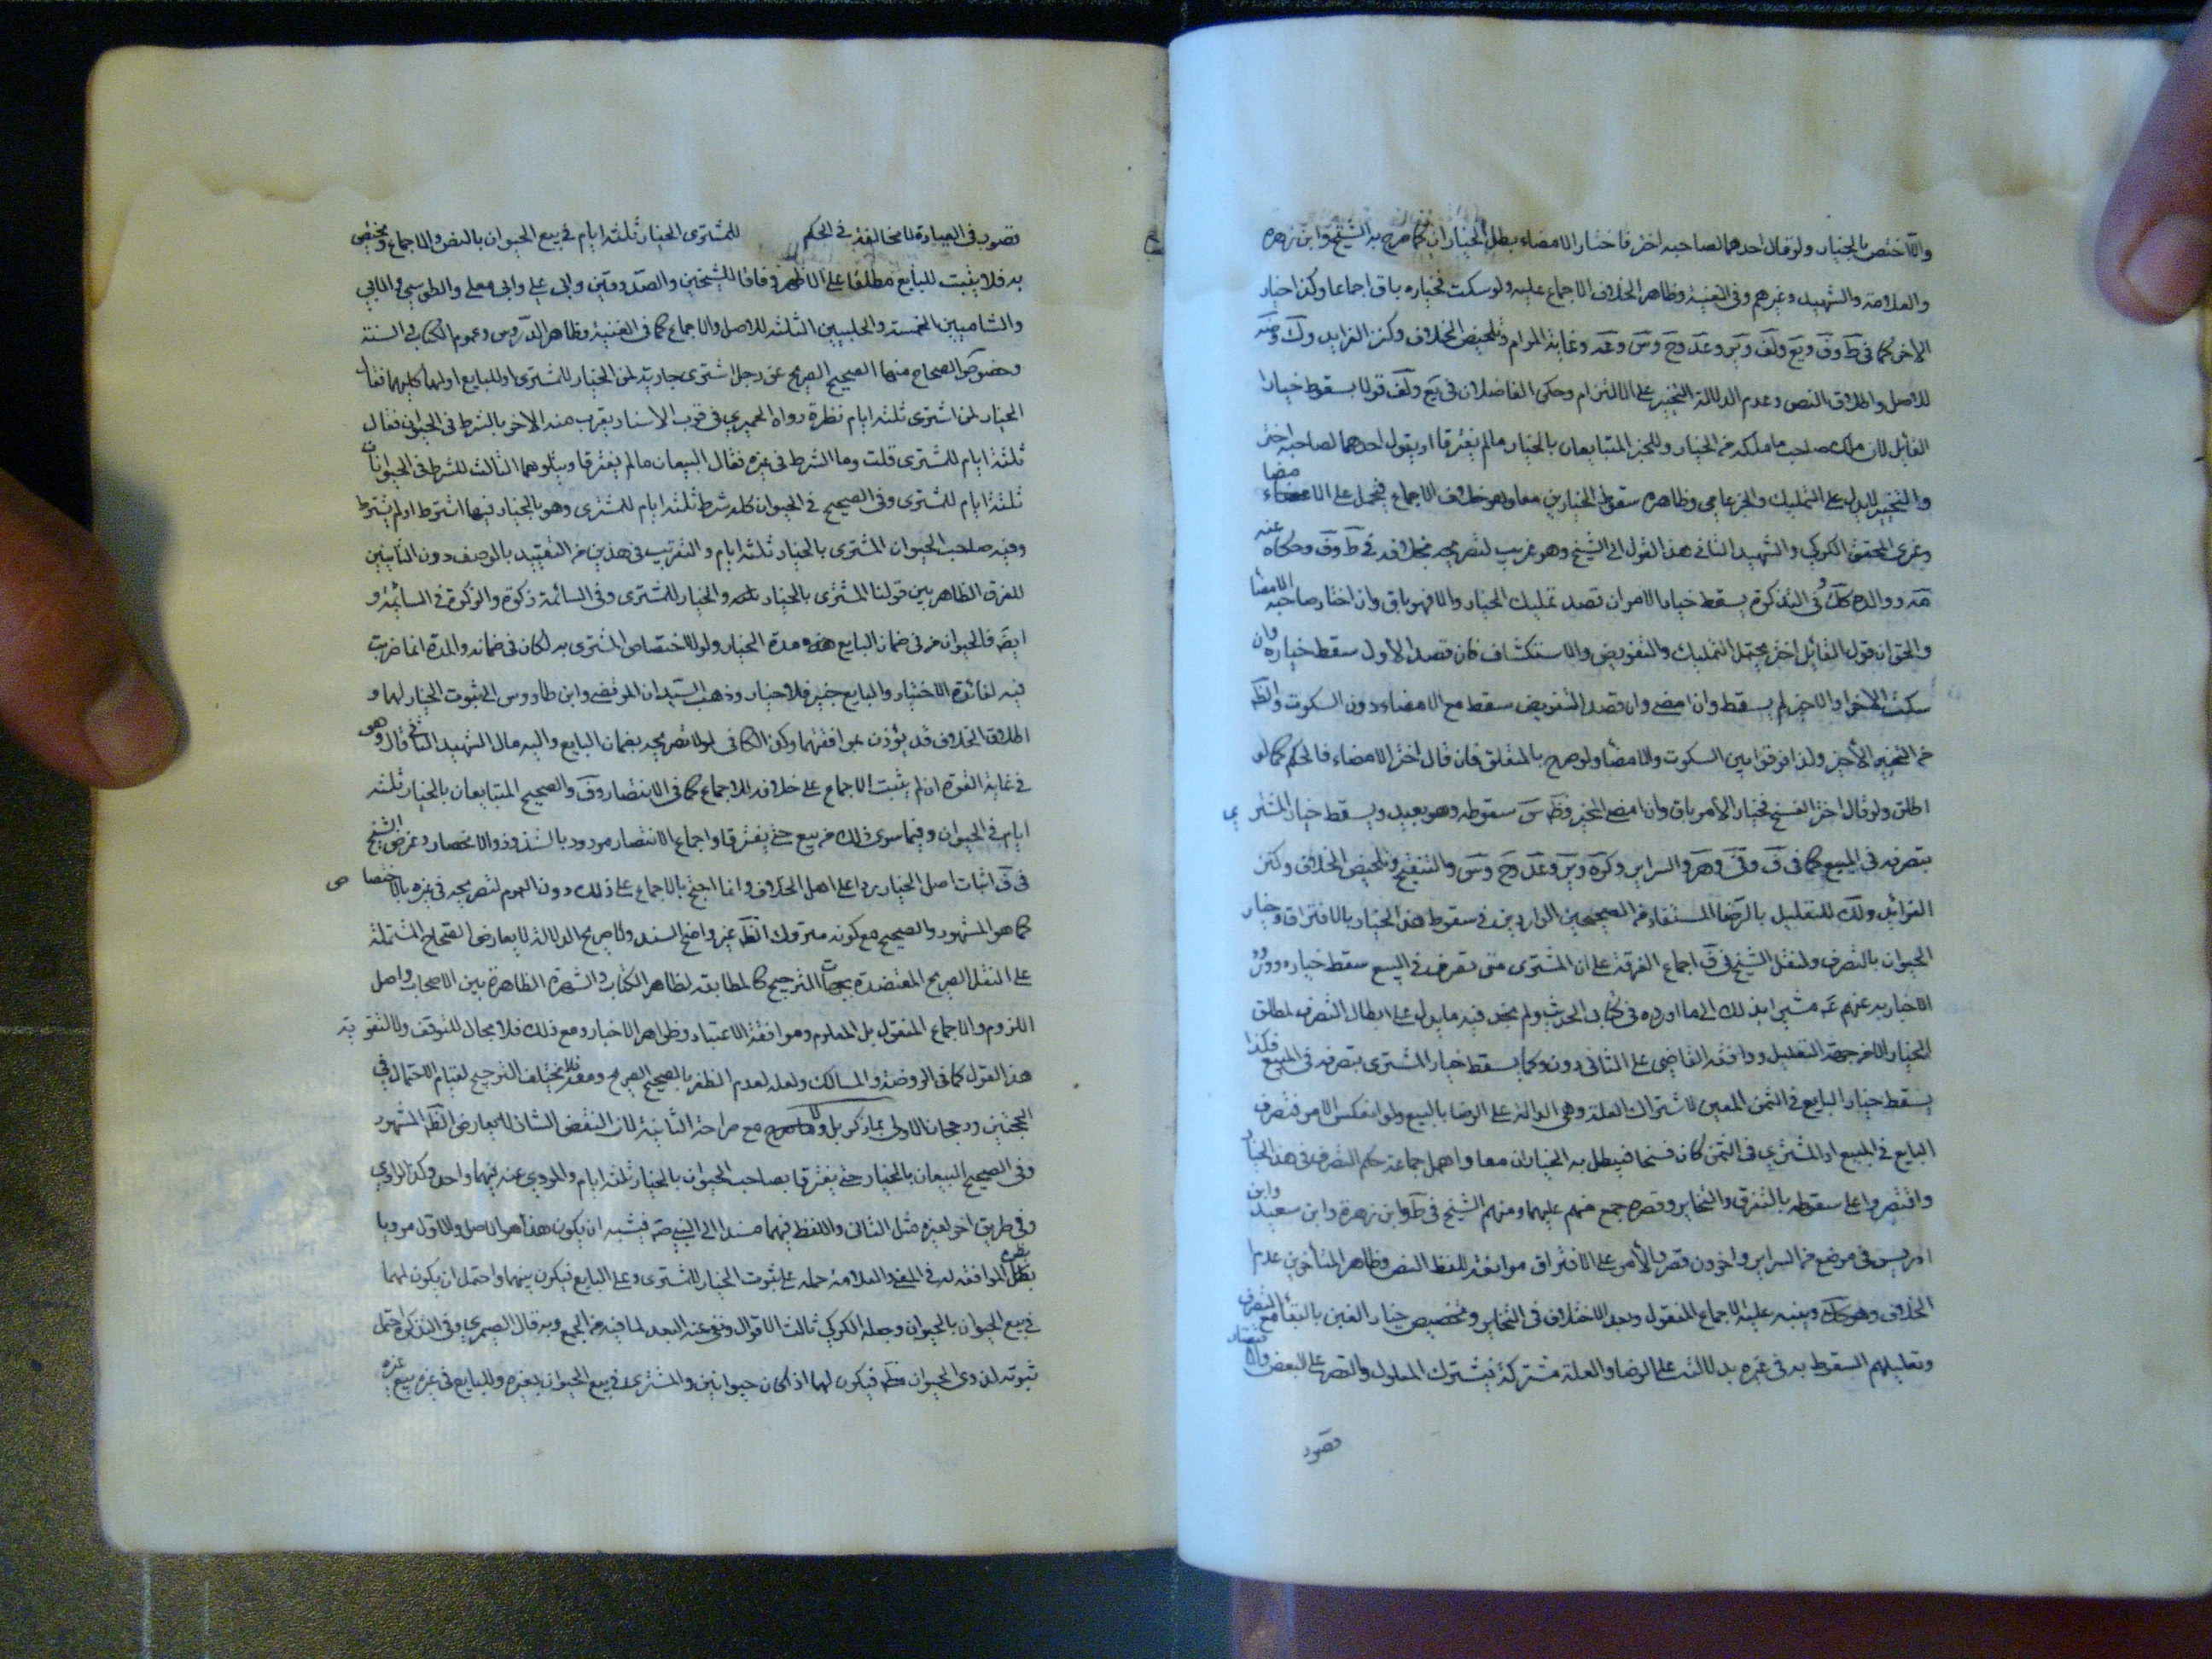 والا اختص بالخيار ولو قال احدهما لصاحبه اختر فاختار الامضاء بطل الخياران كما صرح به الشيخ وابن زهره
والعلامة والشهيد وغيرهم وفى الغنية وظاهر الخلاف الاجماع عليه ولو سكت فخياره باق اجماعا وكذا خيار
الاخر كما فى ط وف ويع ولف وير وعد وح وس وعه وغاية المرام وتلخيص الخلاف وكنز الفرايد وك وضه
للاصل واطلاق النص وعدم الدلالة التخيير على الالتزام وحكى الفاضلان فى يع ولف قولا بسقوط خيار
القائل لان ملك صاحبه ما ملكه من الخيار وللخبر المتبايعان بالخيار ما لم يفترقا او يقول احدهما لصاحبه اختر
والتخيير لا يدل على التمليك والخبر عامى وظاهره سقوط الخيارين معا وهو خلاف الاجماع فيحمل على الامضاء
وعزى المحقق الكركي والشهيد الثانى هذا القول الى الشيخ وهو غريب لتصريحه بخلافه فى ط وف وحكاه عنه
مه ووالده كك وفى التذكرة يسقط خيار الامر ان قصد تمليك الخيار والا فهو باق وان اختار صاحبه الامضا
والحق ان قول القائل اختر يحتمل التمليك والتفويض والاستكشاف فان قصد الاول سقط خياره وان
سكت الاخر او الاخير لم يسقط وان امضى وان قصد التفويض سقط مع الامضاء دون السكوت والظ
من التخيير الاخير ولذا فرقوا بين السكوت والامضا ولو صرح بالمتعلق فان قال اختر الامضاء فالحكم كما لو
اطلق ولو قال اختر الفسخ فخيار الامر باق وان امضى المخير وظ س سقوطه وهو بعيد ويسقط خيار المشترى
بتصرفه فى المبيع كما فى ف وفى وهر والسراير وكره وير وعد وح وس والتنقيح وتلخيص الخلاف وكنز
الفرائد ولك للتعليل بالرضا المستفاد من الصحيحين الواردين فى سقوط هذا الخيار بالافتراق وخيار
الحيوان بالتصرف ولنقل الشيخ فى ف اجماع الفرقة على ان المشترى متى تصرف فى المبيع سقط خياره وورود
الاخبار به عنهم ع مشيرا بذلك الى ما اورده فى كتاب الحديث ولم نجد فيه ما يدل على ابطال التصرف لمطلق
الخيار الا من جهة التعليل ووافقه القاضى على الثانى دون وكما يسقط خيار المشترى بتصرفه فى المبيع فكذا
يسقط خيار البايع فى الثمن المعين لاشتراك العلة وهى الدلالة على الرضا بالبيع ولو انعكس الامر فتصرف
البايع فى المبيع او المشترى فى الثمن كان فسخا فيبطل به الخياران معا واهمل جماعة حكم التصرف فى هذا الخيار
واقتصروا على سقوطه بالتفرق والتخاير وقصره جمع منهم عليهما ومنهم الشيخ فى ط وابن زهرة وابن سعيد وابن
ادريس فى موضع من السراير واخرون قصروا الامر على الافتراق موافقة للفظ النص وظاهر المتأخرين عدم
الخلاف وهو كك وينبه عليه الاجماع المنقول وبعد الاختلاف فى التخاير وتخصيص خيار الغبن بالبقاء مع التصرف
وتعليلهم السقوط به فى غيره بدلالته على الرضا والعلة مشتركة فيشترك المعلول والقصر على البعض والاقتصار
قصور
قصور فى العبارة لا مخالفة فى الحكم للمشترى الخيار ثلثة ايام فى بيع الحيوان بالنص والاجماع ويختص
به فلا يثبت للبايع مطلقا على الاظهر وفاقا للشيخين والصدوقين وابى على وابى يعلى والطوسي والابي
والشاميين الخمسة والحليين الثلثة للاصل والاجماع كما فى الغنية وظاهر الدروس وعموم الكتاب والسنة
وخصوص الصحاح منها الصحيح الصريح عن رجل اشترى جارية لمن الخيار للمشترى او للبايع او لهما كليهما فقال
الخيار لمن اشترى ثلثة ايام نظرة رواه الحميري فى قرب الاسناد يقرب منه الاخر بالشرط فى الحيوان فقال
ثلثة ايام للمشترى قلت وما الشرط فى غيره فقال البيعان ما لم يفترقا ويتلوهما الثالث للشرط فى الحيوانات
ثلثة ايام للمشترى وفى الصحيح فى الحيوان كله شرط ثلثة ايام للمشترى وهو بالخيار فيها اشترط او لم يشترط
وفيه صاحب الحيوان المشترى بالخيار ثلثة ايام والتقريب فى هذين من التقييد بالوصف دون الثانيين
للفرق الظاهر بين قولنا المشترى بالخيار والخيار للمشترى وفى السائمة زكوة والزكوة فى السائمة و
ايضا فالحيوان فى ضمان البايع هذه مدة الخيار ولولا اختصاص المشترى به لكان فى ضمانه والمدة انما ضربت
فيه لفائدة الاختبار والبايع خبير فلا خيار وذهب السيدان المرتضى وابن طاووس الى ثبوت الخيار لهما و
اطلاق الخلاف قد يؤذن بموافقتهما وكذا الكافى لولا تصريحه بضمان البايع واليه مال الشهيد الثانى قال وهو
فى غاية القوة ان لم يثبت الاجماع على خلافه للاجماع كما فى الانتصار وف والصحيح المتبايعان بالخيار ثلثة
ايام فى الحيوان وفيما سوى ذلك من بيع حتى يفترقا واجماع الانتصار مردود بالشذوذ والانحصار وغرض الشيخ
فى ف اثبات اصل الخيار ردا على اهل الخلاف وانما احتج بالاجماع على ذلك دون العموم لتصريحه فى غيره بالاختصاص
كما هو المشهور والصحيح مع كونه متروك الظ غير واضح السند ولا صريح الدلالة لا يعارض الصحاح المشتملة
على النقل الصريح المعتضدة بجهات الترجيح كالمطابقة لظاهر الكتاب والشهرة الظاهرة بين الاصحاب واصل
اللزوم والاجماع المنقول بل المعلوم وموافقة الاعتبار وظواهر الاخبار ومع ذلك فلا مجال للتوقف ولا لتقوية
هذا القول كما فى الروضة والمسالك ولعله لعدم الظفر بالصحيح الصريح ومعه فلا يختلف الترجيح لقيام الاحتمال فى
الحجتين ورجحان الاولى بما ذكر بل ولا مع صراحة الثانية لان النقض الشاذ لا يعارض الظ المشهور
وفى الصحيح البيعان بالخيار حتى يفترقا وصاحب الحيوان بالخيار ثلثة ايام والمروي عنه فيهما واحد وكذا الراوي
وفى طريق اخر لغيره مثل الثانى واللفظ فيهما مسند الى النبي ص فيشبه ان يكون هذا هو الاصل والاول مرويا
بنظره الموافقة له فى المعنى والعلامة حمله على ثبوت الخيار للمشترى وعلى البايع فيكون بينهما واحتمل ان يكون لهما
فى بيع الحيوان بالحيوان وجعله الكركي ثالث الاقوال ونفى عنه البعد لما فيه من الجمع وبه قال الصيمري وفى التذكرة احتمل
ثبوته لذوى الحيوان مط فيكون لهما اذا كان حيوانين والمشترى فى بيع الحيوان بغيره وللبايع فى غيره بيع غيره